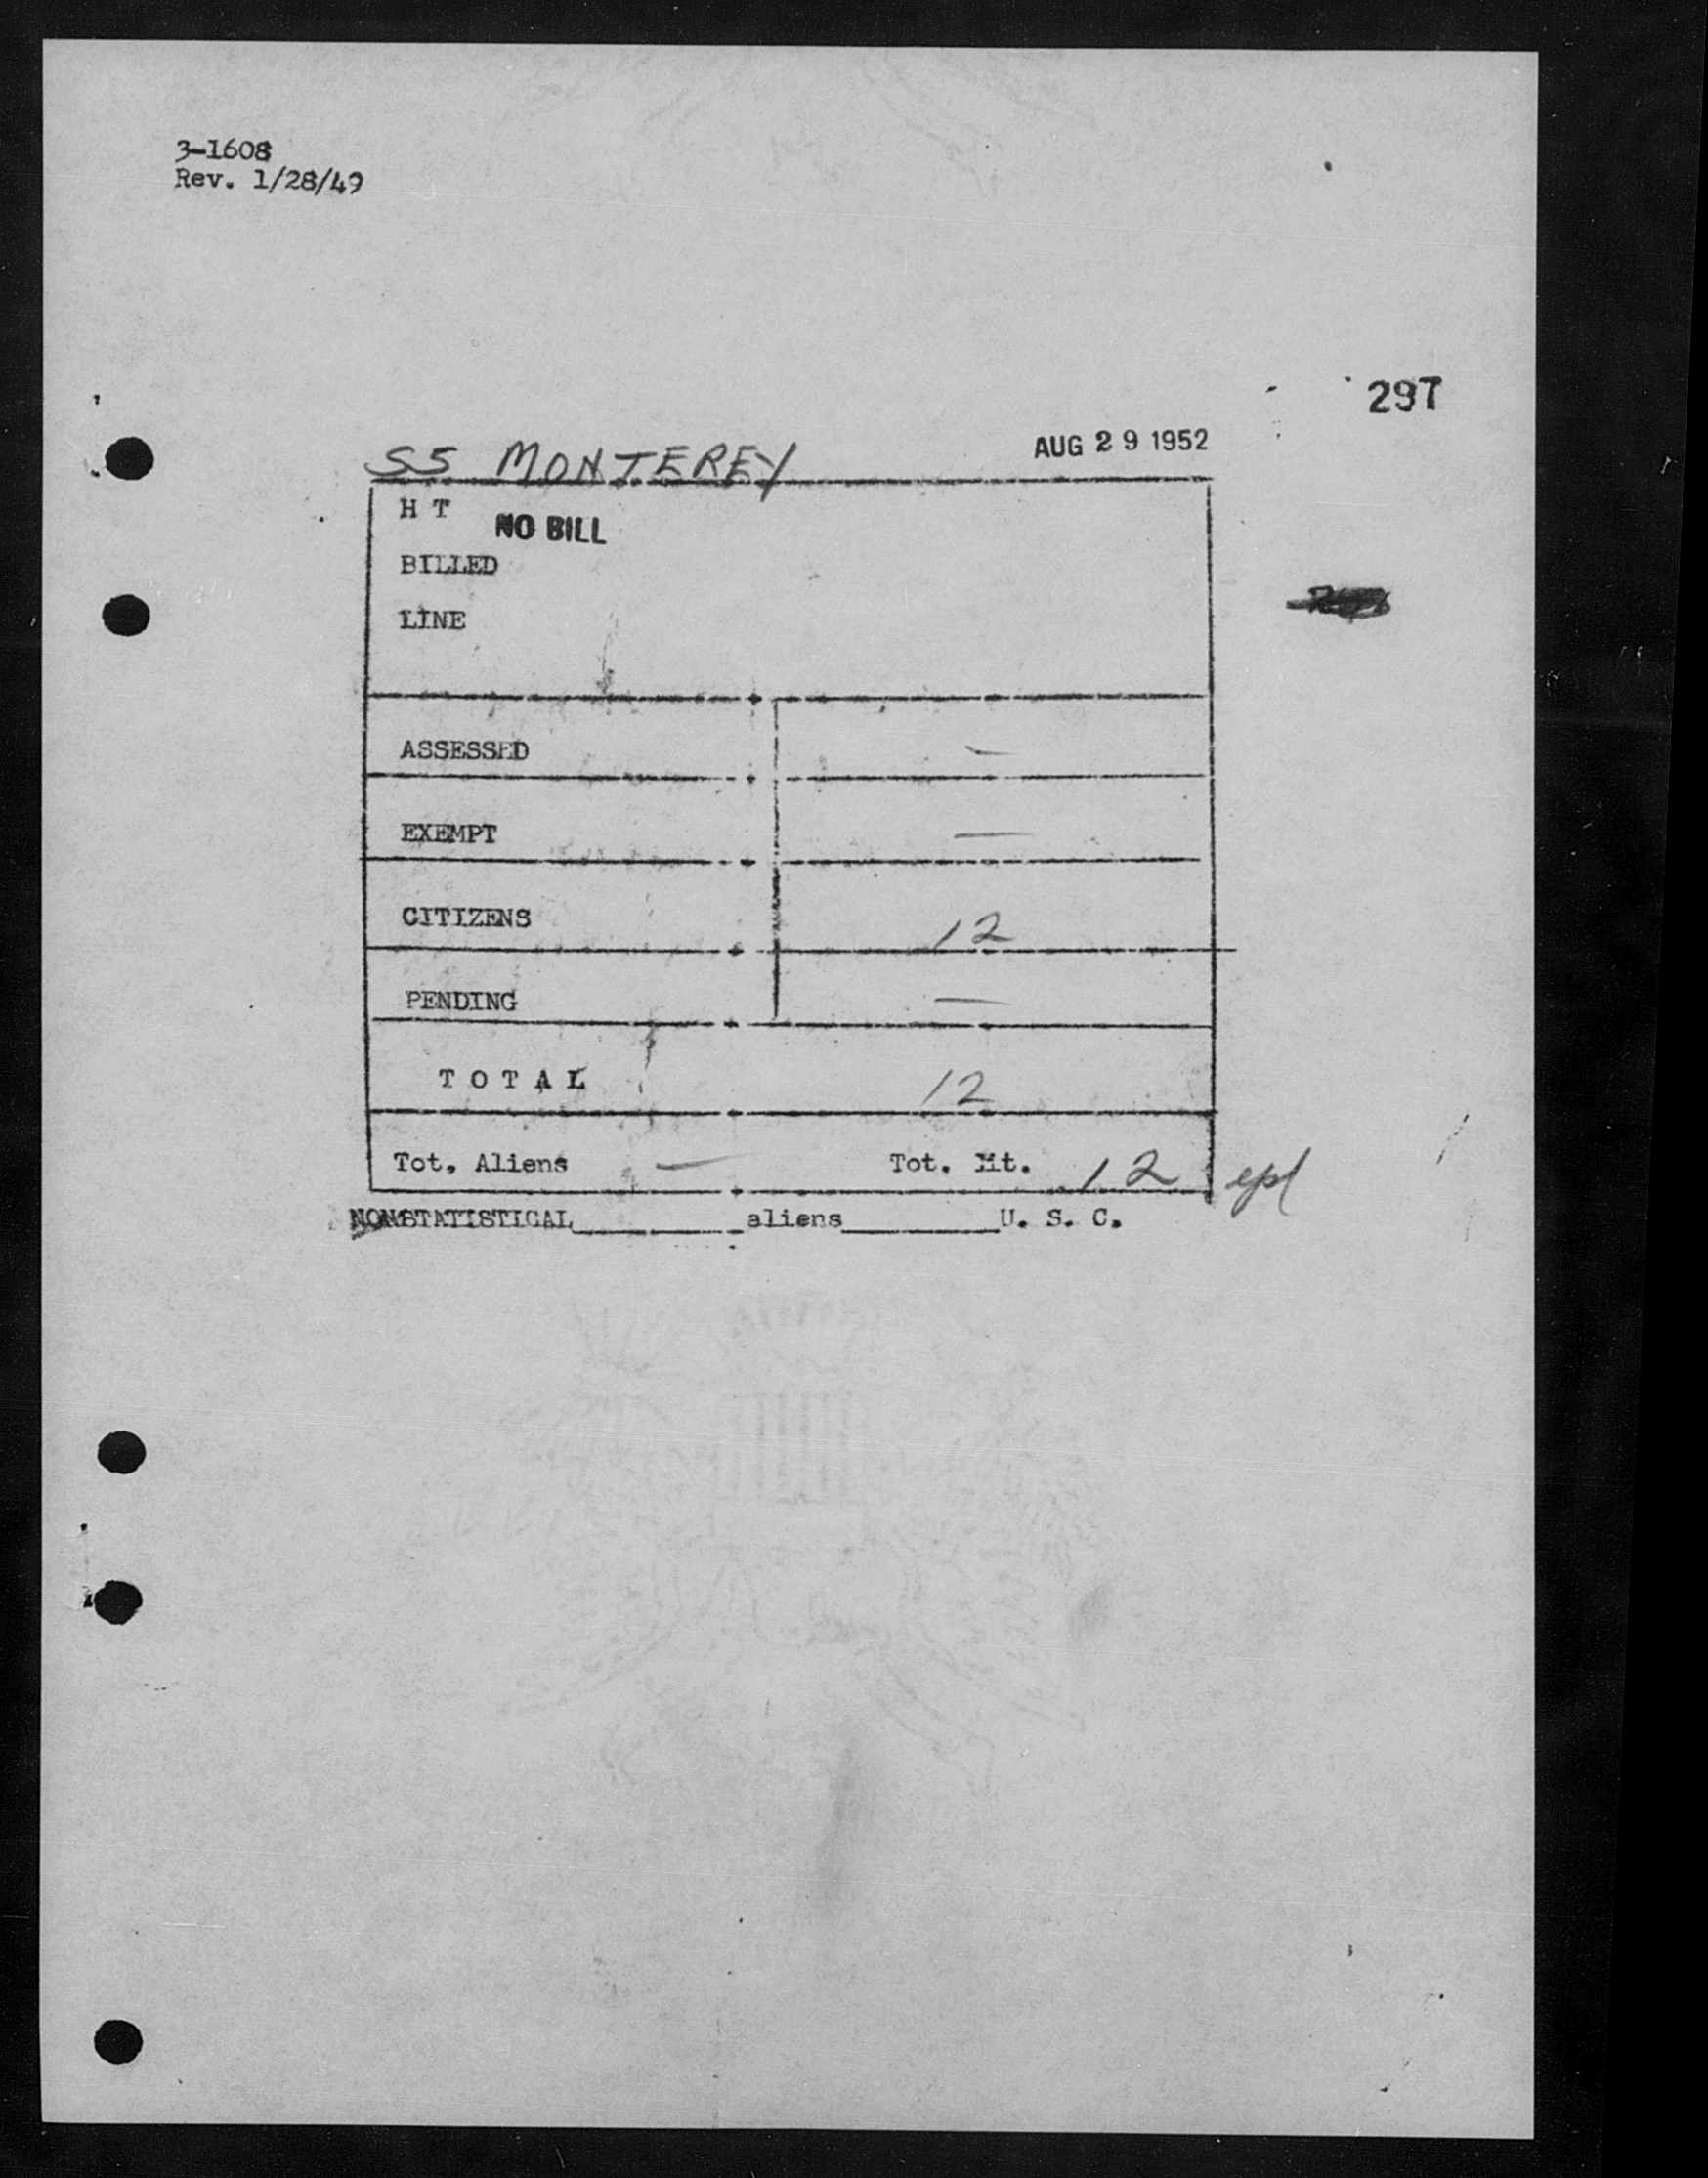 3-1608
Rev. 1/28/49
297
SS MONTEREY AUG 29 1952
H T
NO BILL
BILLED
LINE
ASSESSED —
EXEMPT —
CITIZENS 12
PENDING —
T O T A L 12
Tot. Aliens — Tot. Mt. 12 epl
NONSTATISTICAL aliens U. S. C.